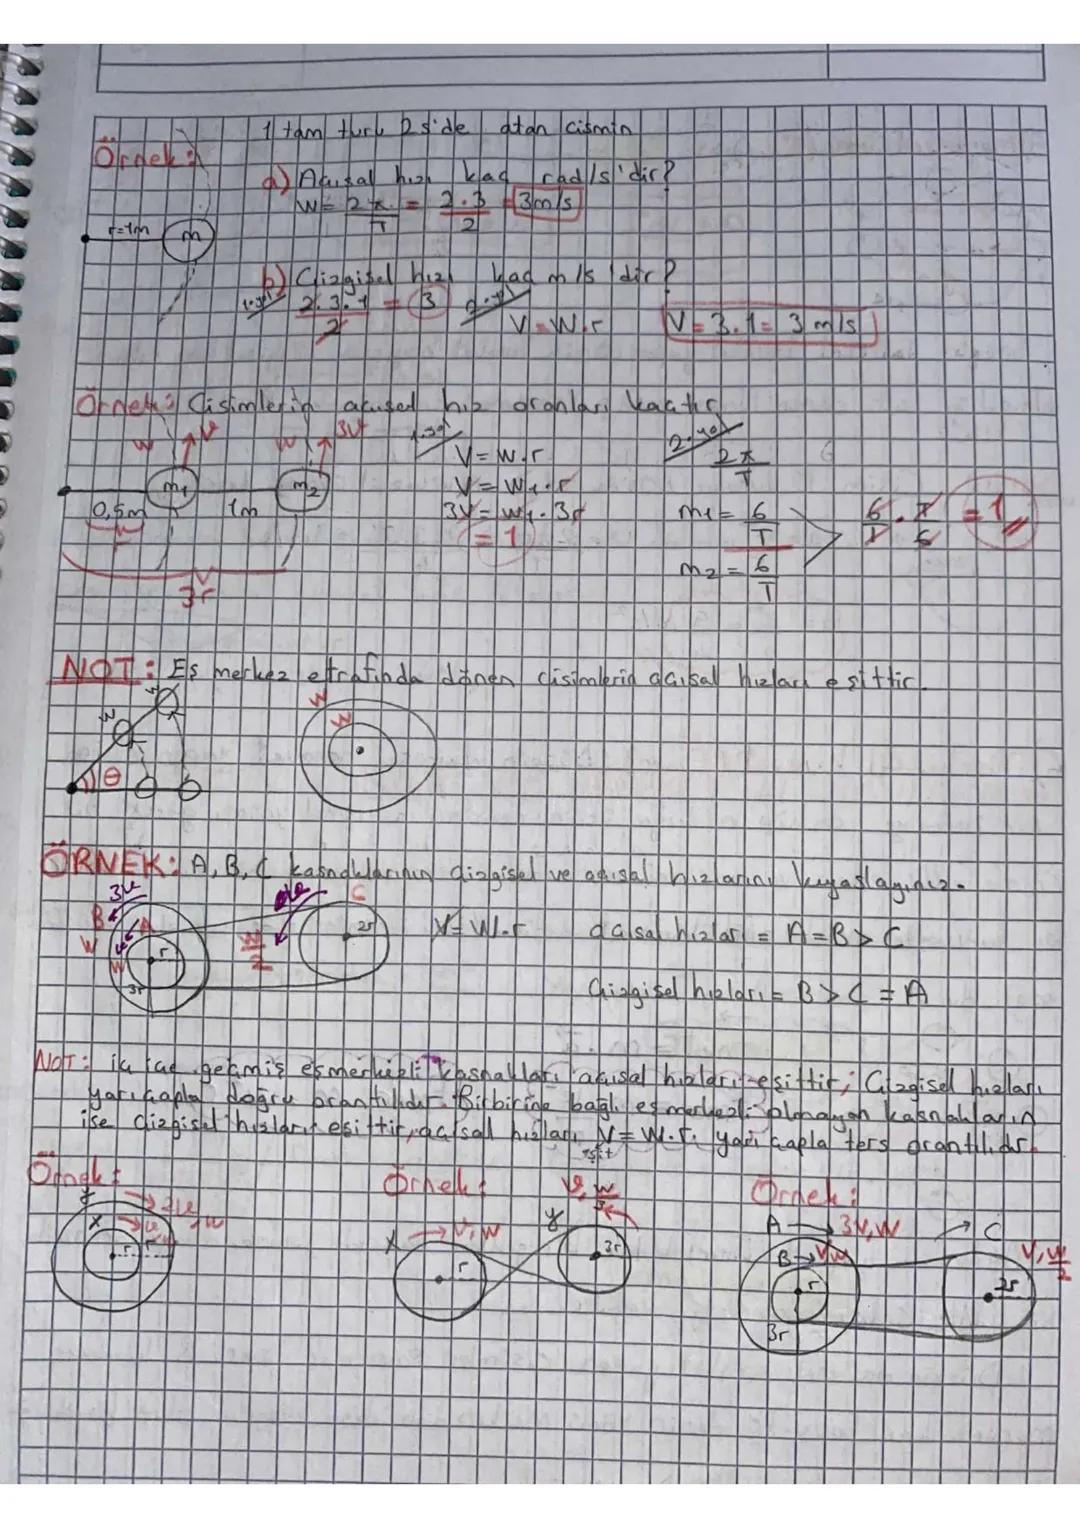 Örnek: 1 tam turu 2 s'de atan cismin
a) Açısal hızı kaç rad/s'dir?
W = 2π/T = 2.3/2 = 3m/s
r=1m m
b) Çizgisel hızı kaç m/s'dir?
1.yol 2.3.1/2 = 3 2.yol V=W.r V=3.1=3 m/s
Örnek: Cisimlerin açısal hız oranları kaçtır
W V W 3V 1.yol 2.yol
V=W.r 2π/T
m1 m2 V=W1.r
0,5m 1m 3V=W1.3r m1=6/T 6/T.T/6=1
r =1 m2=6/T
3r
NOT: Eş merkez etrafında dönen cisimlerin açısal hızları eşittir.
W W W W
θ
ÖRNEK: A, B, C kasnaklarının çizgisel ve açısal hızlarını kıyaslayınız.
3V B A W W r 3r W/2 C 2r V=W.r açısal hızları = A=B>C
Çizgisel hızları = B>C=A
NOT: iç içe geçmiş eşmerkezli kasnakları açısal hızları eşittir, Çizgisel hızları
yarıçapla doğru orantılıdır. Birbirine bağlı eşmerkezli olmayan kasnakların
ise çizgisel hızları eşittir, açısal hızları V=W.r. yarı çapla ters orantılıdır.
eşit
Örnek: Örnek: Örnek:
y 2V, W x r r
x V, W r y V, W/3 3r
A 3V, W B V W r 3r C V, W/2 2r